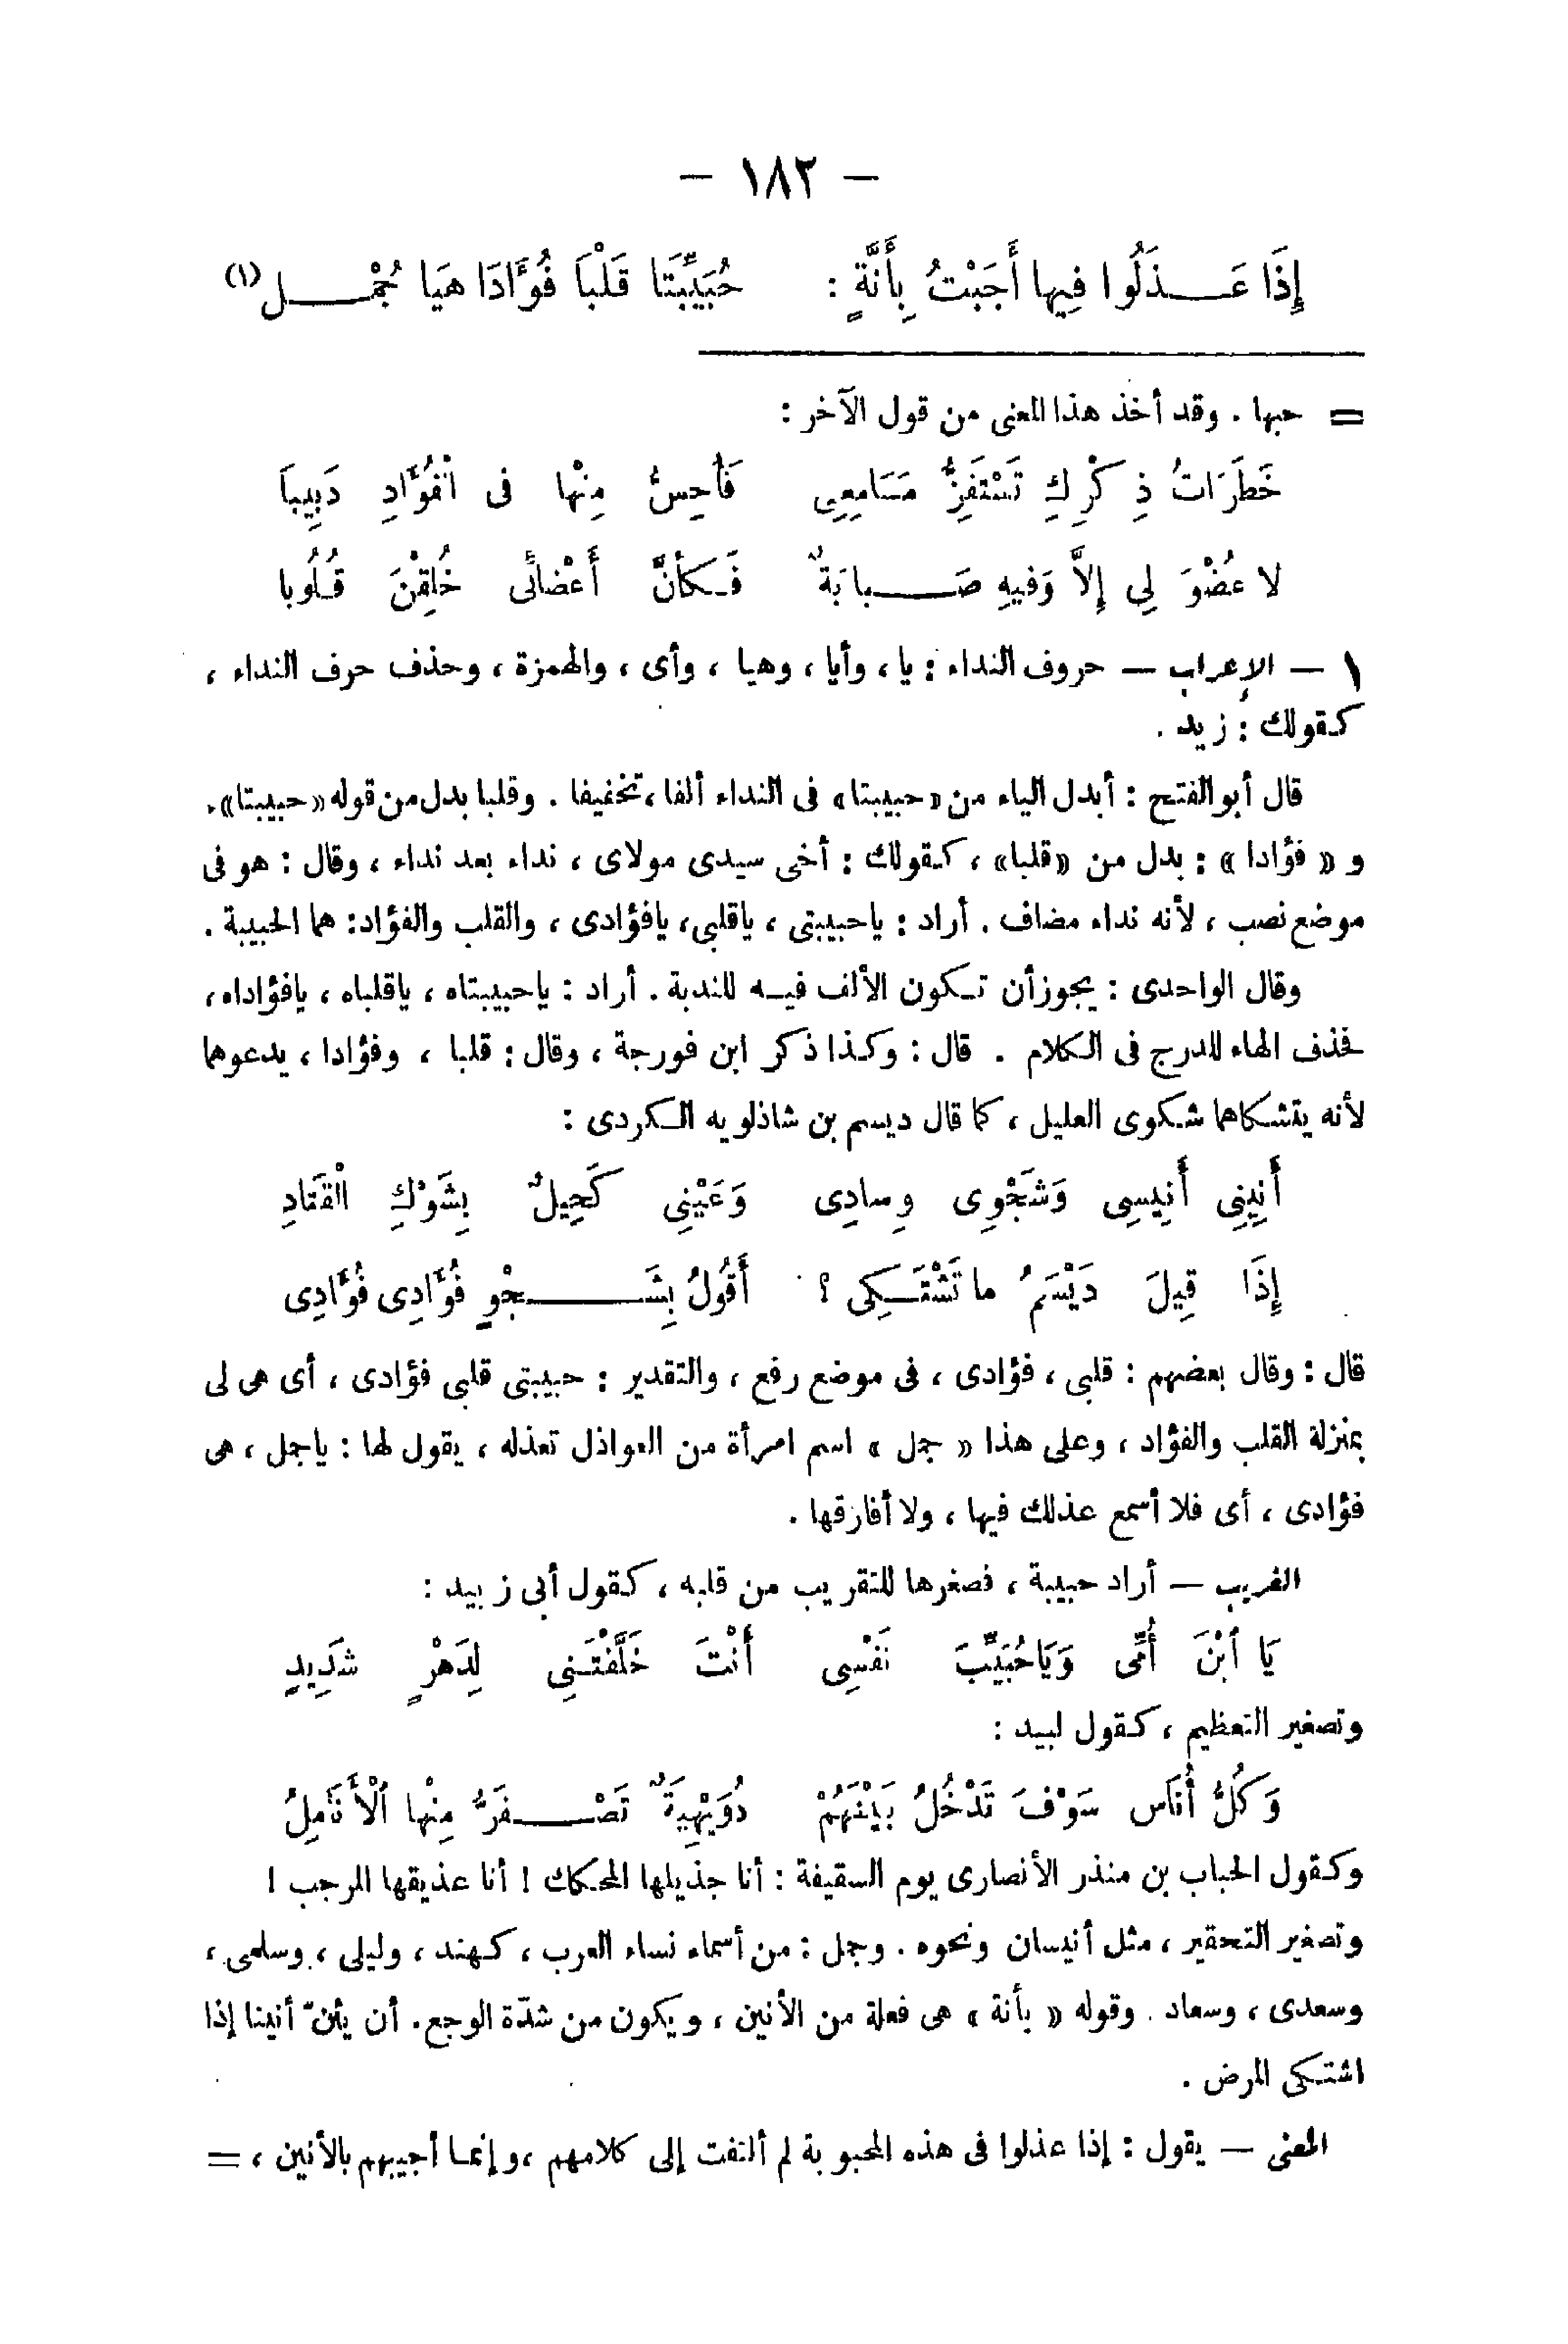 — ١٨٢ —
إِذَا عَـــذَلُوا فِيها أَجَبْتُ بِأَنَّةٍ : حُبَيِّبَتَا قَلْبَا فُؤَادَا هَيَا جُمْـــلُ (١)
= حبها . وقد أخذ هذا المعنى من قول الآخر :
خَطَرَاتُ ذِكْرِكِ تَسْتَفِزُّ مَسَامِعِى فَأُحِسُّ مِنْها فى الْفُؤَادِ دَبِيبَا
لا عُضْوَ لِى إِلاَّ وَفيهِ صَـــبابَةٌ فَـكأنَّ أَعْضائى خُلِقْنَ قُـلُوبا
١ — الإعراب — حروف النداء : يا ، وأيا ، وهيا ، وأى ، والهمزة ، وحذف حرف النداء ،
كقولك : زيد .
قال أبو الفتح : أبدل الياء من «حبيبتا» فى النداء ألفا ، تخفيفا . وقلبا بدل من قوله «حبيبتا» .
و « فؤادا » : بدل من «قلبا» ، كقولك : أخى سيدى مولاى ، نداء بعد نداء ، وقال : هو فى
موضع نصب ، لأنه نداء مضاف . أراد : ياحبيبتى ، ياقلبى ، يافؤادى ، والقلب والفؤاد : هما الحبيبة .
وقال الواحدى : يجوز أن تـكون الألف فيـه للندبة . أراد : ياحبيبتاه ، ياقلباه ، يافؤاداه ،
فحذف الهاء للدرج فى الـكلام . قال : وكذا ذكر ابن فورجة ، وقال : قلبا ، وفؤادا ، يدعوهما
لأنه يتشكاهما شكوى العليل ، كما قال ديسم بن شاذلويه الـكردى :
أَنِينِى أَنِيسِى وَشَجْوِى وِسادِى وَعَيْنِى كَحِيلٌ بِشَوْكِ الْقَتَادِ
إِذَا قِيلَ دَيْسَمُ ما تَشْتَـكِى ؟ أَقُولُ بِشَـــجْوٍ فُؤَادِى فُؤَادِى
قال : وقال بعضهم : قلبى ، فؤادى ، فى موضع رفع ، والتقدير : حبيبتى قلبى فؤادى ، أى هى لى
بمنزلة القلب والفؤاد ، وعلى هذا « جمل » اسم امرأة من العواذل تعذله ، يقول لها : ياجمل ، هى
فؤادى ، أى فلا أسمع عذلك فيها ، ولا أفارقها .
الغريب — أراد حبيبة ، فصغرها للتقريب من قلبه ، كقول أبى زبيد :
يَا ابْنَ أُمِّى وَيَاحُبَيِّبَ نَفْسِى أَنْتَ خَلَّفْتَـنِى لِدَهْرٍ شَدِيدِ
وتصغير التعظيم ، كقول لبيد :
وَكُلُّ أُنَاسٍ سَوْفَ تَدْخُلُ بَيْنَهُمْ دُوَيْهِيَةٌ تَصْـــفَرُّ مِنْها الْأَنَامِلُ
وكقول الحباب بن منذر الأنصارى يوم السقيفة : أنا جذيلها المحكك ! أنا عذيقها المرجب !
وتصغير التحقير ، مثل أنيسان ونحوه . وجمل : من أسماء نساء العرب ، كهند ، وليلى ، وسلمى ،
وسعدى ، وسعاد . وقوله « بأنة » هى فعلة من الأنين ، ويكون من شدّة الوجع . أن يئنّ أنينا إذا
اشتكى المرض .
المعنى — يقول : إذا عذلوا فى هذه المحبوبة لم ألتفت إلى كلامهم ، وإنما أجيبهم بالأنين ، =